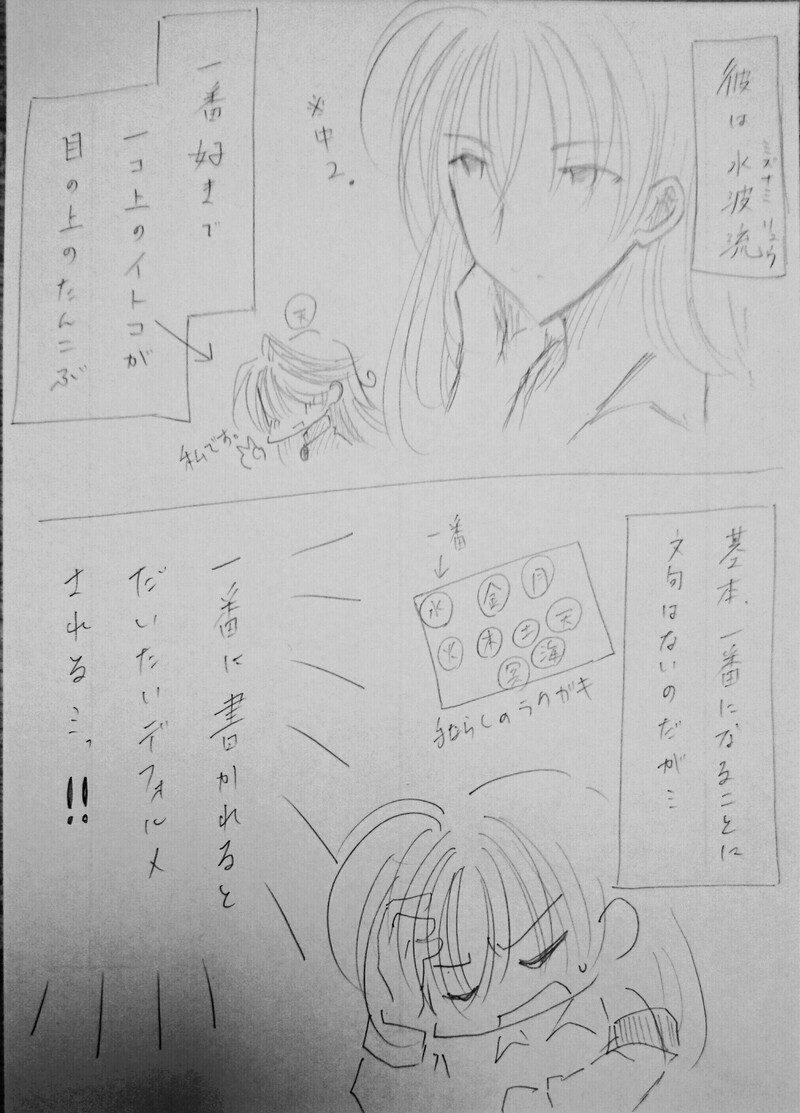 彼は水波流
ミズナミ リュウ
※中2。
一番好きで
一コ上のイトコが
目の上のたんこぶ
天
私です。
基本、一番になることに
文句はないのだが…
一番
↓
水 金 月
火 木 土 天
冥 海
手ならしのラクガキ
一番に書かれると
だいたいデフォルメ
される…っ!!